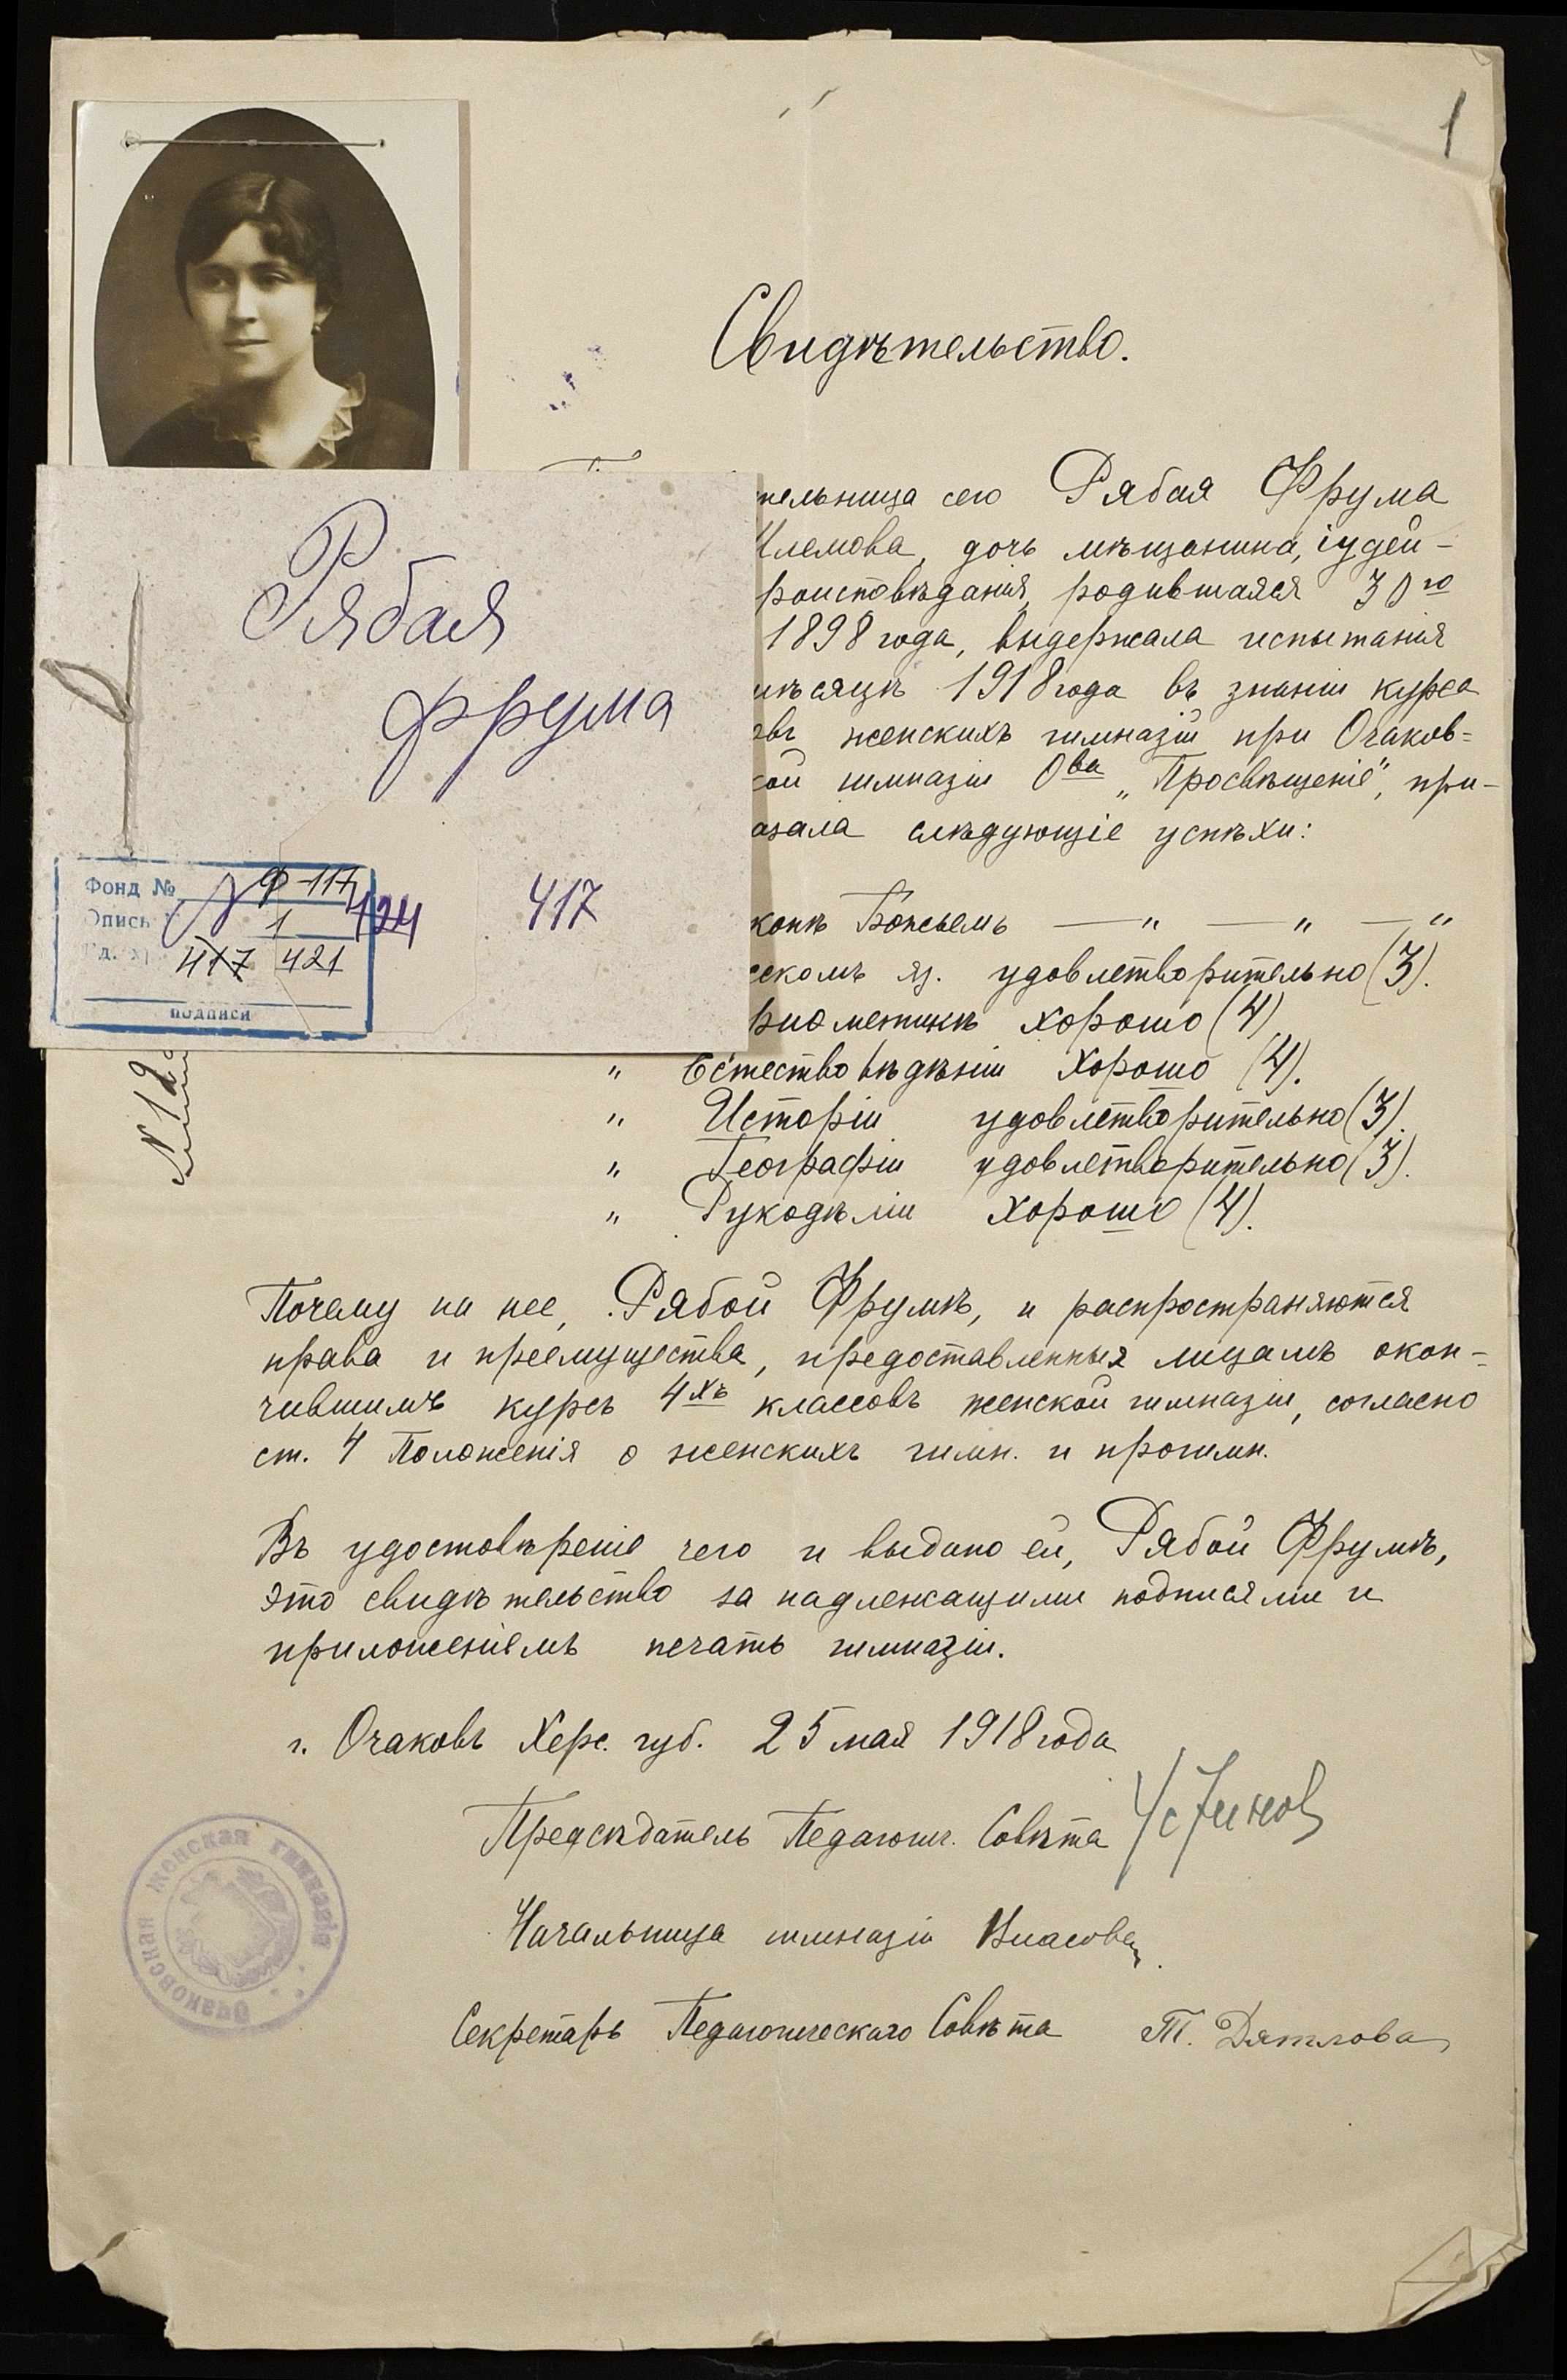 1
Свидѣтельство.
сего Рябая Фрума
дочь мѣщанина, іудей-
родившаяся 30го
1898 года, выдержала испытанія
1918 года въ знаніи курса
женскихъ гимназій при Очаков=
гимназіи О-ва „Просвѣщеніе", при-
слѣдующіе успѣхи:
Божьемъ — " — " — "
яз. удовлетворительно (3).
хорошо (4)
" Естествовѣдѣніи хорошо (4).
" Исторіи удовлетворительно (3).
" Географіи удовлетворительно (3).
" Рукодѣліи хорошо (4).
Почему на нее, Рябой Фрумѣ, и распространяются
права и преемущества, предоставленныя лицамъ окон-
чившимъ курсъ 4хъ классовъ женской гимназіи, согласно
ст. 4 Положенія о женскихъ гимн. и прогимн.
Въ удостовѣреніе чего и выдано ей, Рябой Фрумѣ,
это свидѣтельство за надлежащими подписями и
приложеніемъ печать гимназіи.
г. Очаковъ Херс. губ. 25 мая 1918 года
Предсѣдатель Педагогич. Совѣта Устинов
Начальница гимназіи Власова
Секретарь Педагогическаго Совѣта Т. Дятлова
Очаковская женская гимназія
Рябая
Фрума
417
Фонд № Ф-117
Опись 1
424
417 421
подписи
№ 12